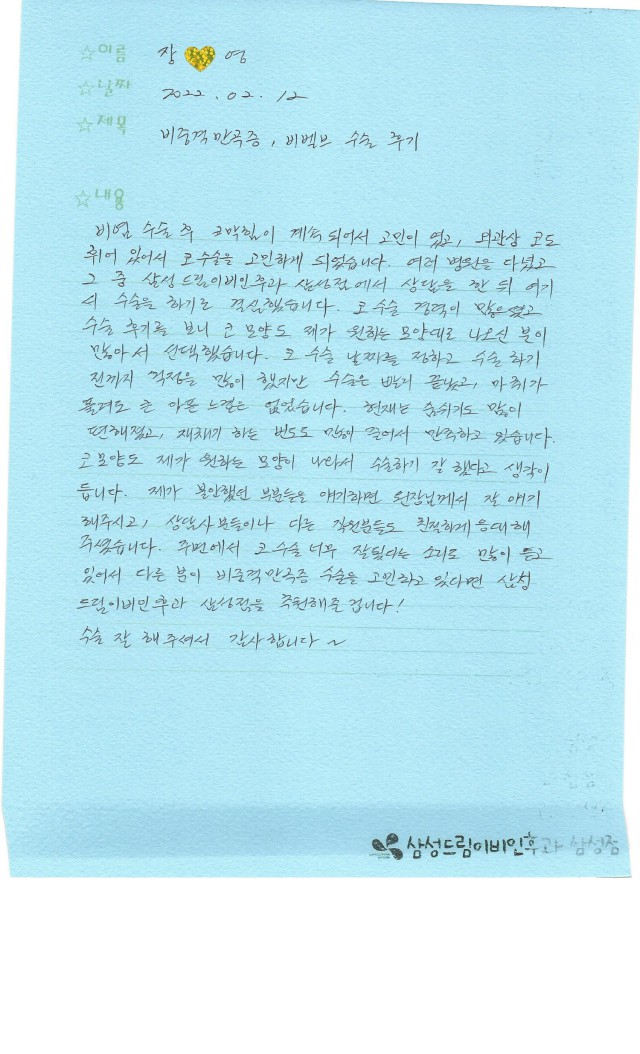 ☆이름 장 💛 영
☆날짜 2022. 02. 12
☆제목 비중격만곡증, 비벨브 수술 후기
☆내용
비염 수술 후 코막힘이 계속 되어서 고민이 였고, 외관상 코도
휘어 있어서 코수술을 고민하게 되었습니다. 여러 병원을 다녔고
그 중 삼성드림이비인후과 삼성점에서 상담을 한 뒤 여기
서 수술을 하기로 결심했습니다. 코수술 경력이 많으셨고
수술 후기를 보니 코 모양도 제가 원하는 모양대로 나오신 분이
많아서 선택했습니다. 코 수술 날짜를 정하고 수술 하기
전까지 걱정을 많이 했지만 수술은 빨리 끝났고, 마취가
풀려도 큰 아픈 느낌은 없었습니다. 현재는 숨쉬기도 많이
편해졌고, 재채기 하는 빈도도 많이 줄어서 만족하고 있습니다.
코모양도 제가 원하는 모양이 나와서 수술하기 잘 했다고 생각이
듭니다. 제가 불안했던 부분들을 얘기하면 원장님께서 잘 얘기
해주시고, 상담사분들이나 다른 직원분들도 친절하게 응대해
주셨습니다. 주변에서 코수술 너무 잘됐다는 소리도 많이 듣고
있어서 다른 분이 비중격만곡증 수술을 고민하고 있다면 삼성
드림이비인후과 삼성점을 추천해줄 겁니다!
수술 잘 해주셔서 감사합니다~
삼성드림이비인후과 삼성점